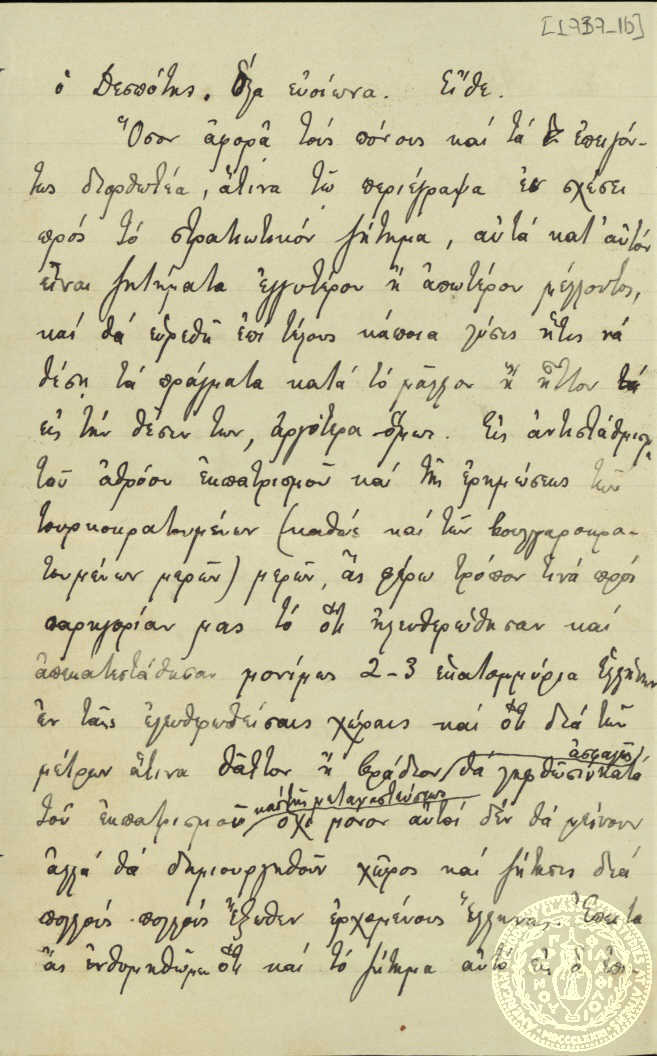 [1737-1b]
ὁ Δεσπότης. εὐοίωνα. Εἴθε.
Ὅσον ἀφορᾶ τοὺς πόρους καί τά ἐπειγόν-
τως διορθωτέα, ἅτινα τῷ περιέγραψα ἐν σχέσει
πρός τό στρατιωτικόν ζήτημα, αὐτά κατ' αὐτόν
εἶναι ζητήματα ἐγγυτέρου ἤ ἀπωτέρου μέλλοντος,
καί θά εὑρεθῇ ἐπί τέλους κάποια λύσις ἥτις νά
θέσῃ τά πράγματα κατά τό μᾶλλον ἤ ἧττον
εἰς τήν θέσιν των, ἀργότερα ὅμως. Εἰς ἀντιστάθμισμα
τοῦ ἀθρόου ἐκπατρισμοῦ καί τῆς ἐρημώσεως τῶν
τουρκοκρατουμένων (καθώς καί τῶν βουλγαροκρα-
τουμένων μερῶν) μερῶν, ἄς φέρω τρόπον τινά πρός
παρηγορίαν μας τό ὅτι ἠλευθερώθησαν καί
ἀπεκατεστάθησαν μονίμως 2-3 ἑκατομμύρια Ἑλλήνων
ἐν ταῖς ἐλευθερωθείσαις χώραις καί ὅτι διά τῶν
μέτρων ἅτινα θᾶττον ἤ βράδιον θά ληφθῶσιν ἀσφαλῶς κατά
τοῦ ἐκπατρισμοῦ καί τῆς μεταναστεύσεως ὄχι μόνον αὐτοί δέν θά φεύγουν
ἀλλά θά δημιουργηθοῦν χῶρος καί ζήτησις διά
πολλούς πολλούς ἔξωθεν ἐρχομένους Ἕλληνας. Ἔπειτα
ἄς ἐνθυμηθῶμεν ὅτι καί τό ζήτημα αὐτό εἰς ὅ ἐπι-